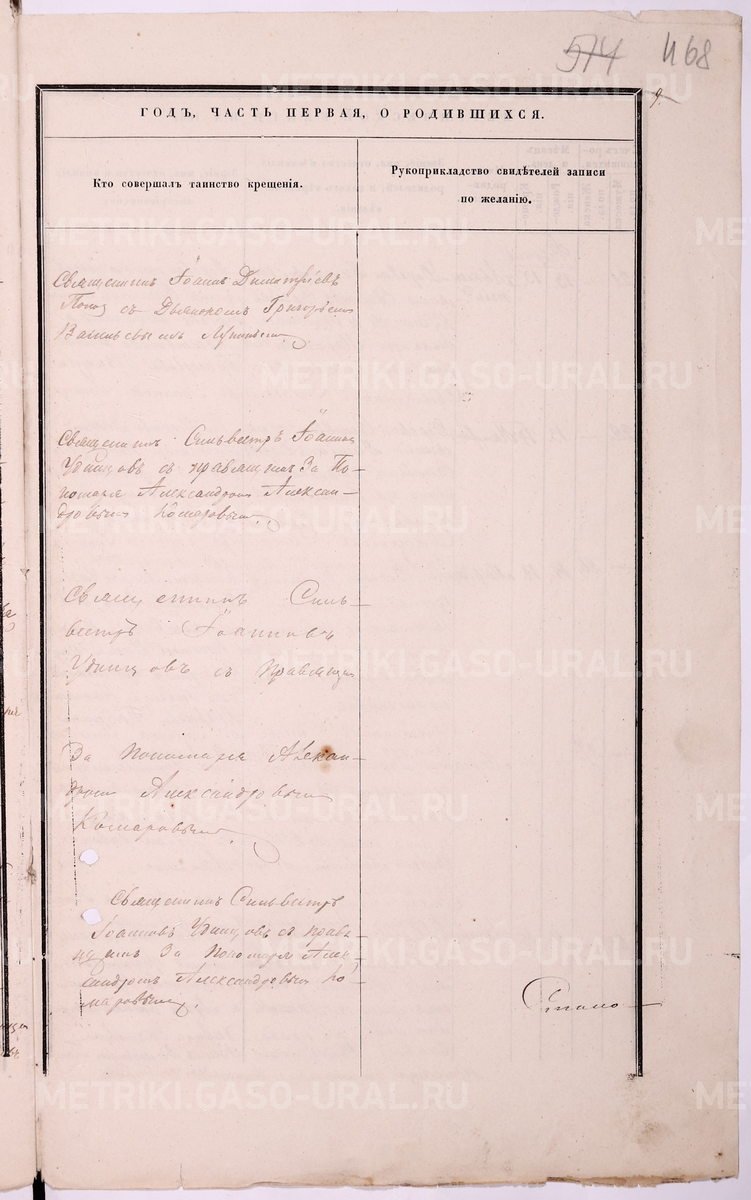 574 468
9.
ГОДЪ, ЧАСТЬ ПЕРВАЯ, О РОДИВШИХСЯ.
Кто совершалъ таинство крещенія.
Рукоприкладство свидѣтелей записи
по желанію.
Священникъ Іоаннъ Димитріевъ
Попов съ Дьякономъ Григоріем
Васильевымъ
Священникъ Сильвестръ Іоаннов
Удинцовъ съ правящимъ За По-
номаря Александром Алексан-
дровымъ Комаровымъ.
Священникъ Силь-
вестръ Іоанновъ
Удинцовъ съ правящим
За пономаря Алексан-
дром Александровымъ
Комаровымъ.
Священникъ Сильвестръ
Іоанновъ Удинцовъ съ правя-
щимъ За пономаря Алек-
сандромъ Александровымъ Ко-
маровымъ.
METRIKI.GASO-URAL.RU